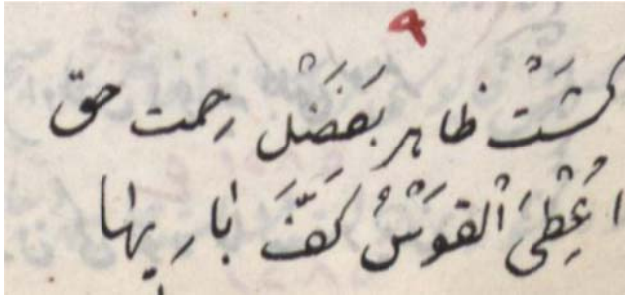 ٩
كشت ظاهر بفضل رحمت حق
اعطى القوس كف باريها